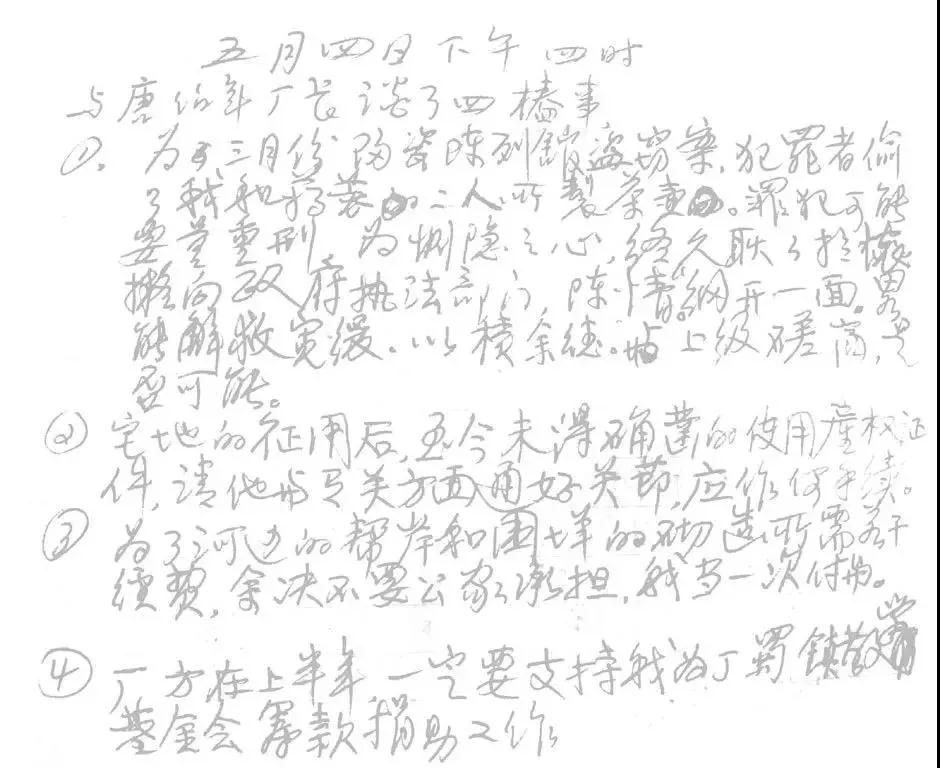 五月四日下午四时
与唐伯年厂长谈了四樁事
①. 为三月份陶瓷陈列館盗窃案,犯罪者偷
了我和蒋蓉的二人所製茶壶。罪犯可能
要量重刑,为恻隐之心,终久耿々於懷
擬向政府执法部门,陈情網开一面。畧
能解救宽缓。以積余德。与上级磋商,是
否可能。
② 宅地的征用后,至今未得确蕋的使用產权证
件,请他与有关方面通好关节,应作何手续。
③ 为了河边的帮岸和围墙的砌造所需若干
经费,余决不要公家承担,我当一次付出。
④ 厂方在上半年,一定要支持我为丁蜀镇
基金会筹款捐助工作